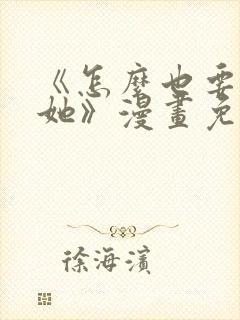 《怎麼也要
她》漫畫免
徐海濱